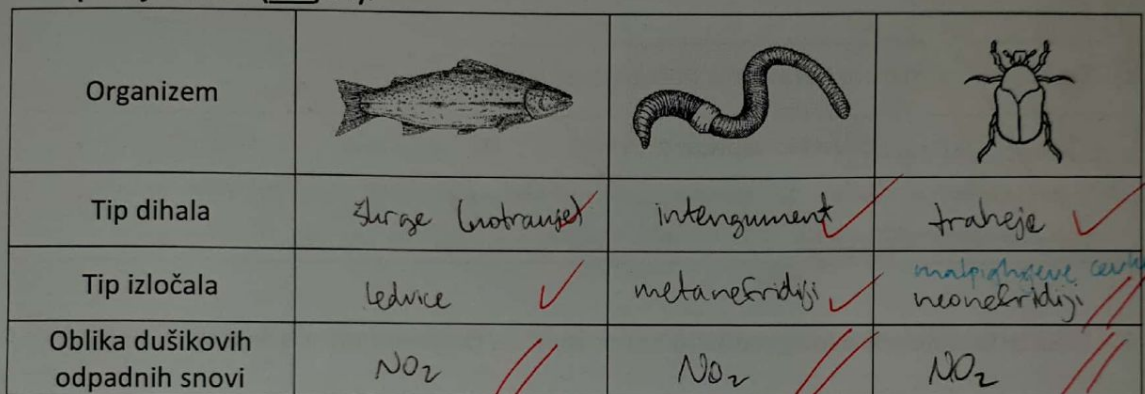 Organizem
Tip dihala škrge (notranje) intengument traheje
Tip izločala ledvice metanefridiji malpighijeve
neonefridiji
Oblika dušikovih
odpadnih snovi NO2 NO2 NO2